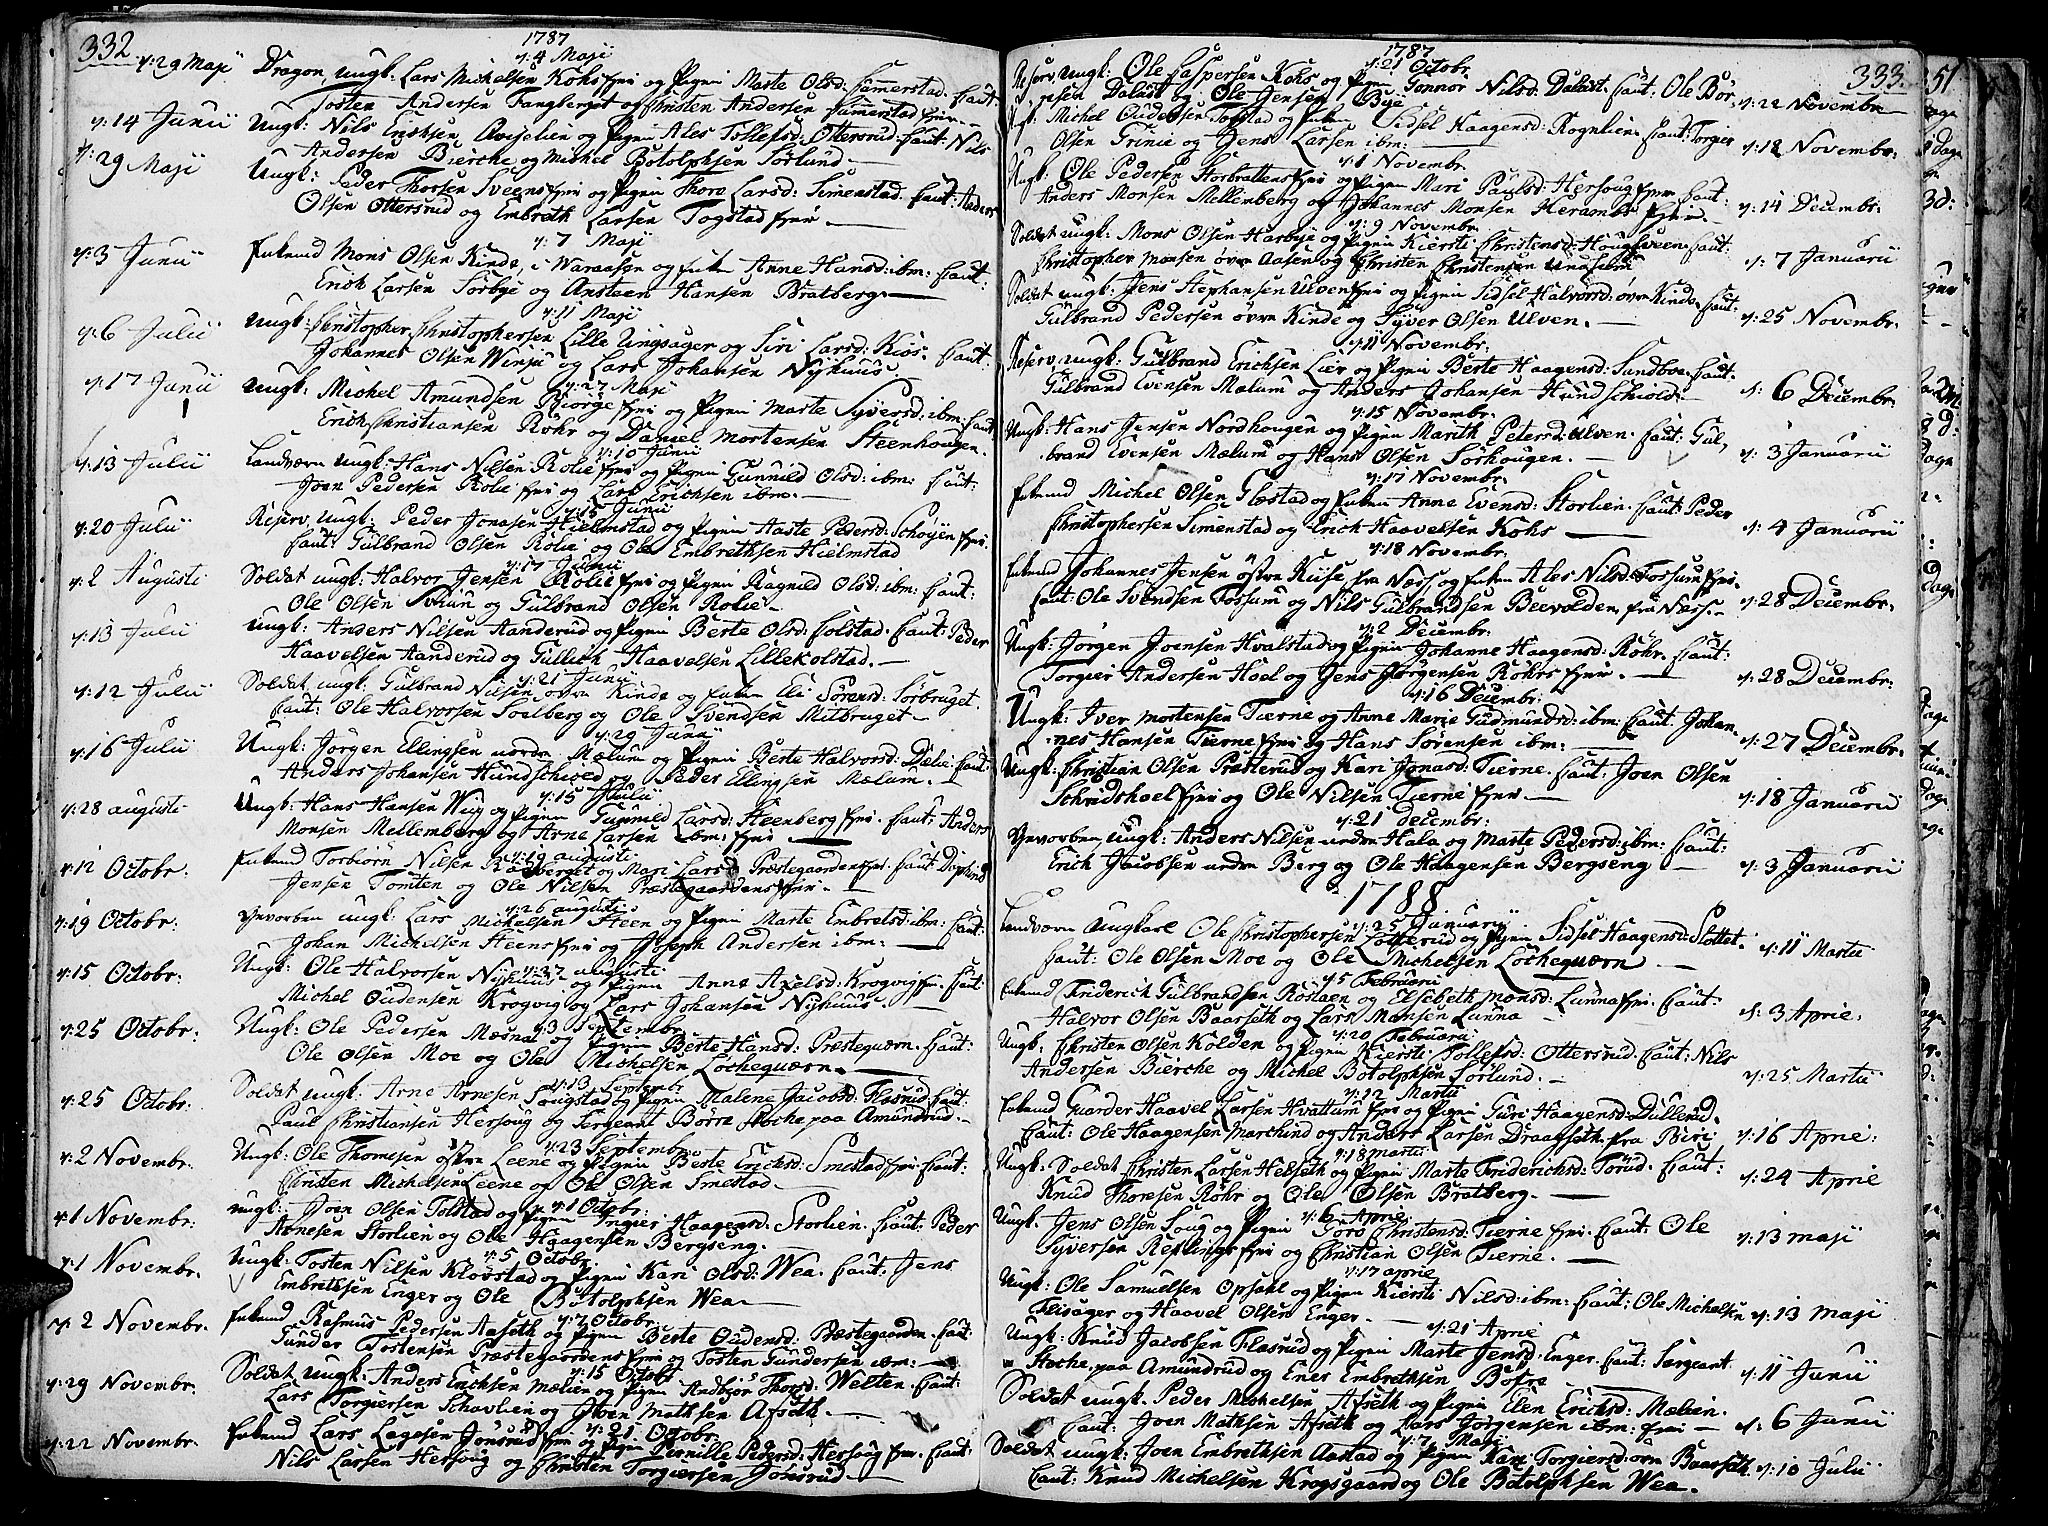 332
1787
d: 4 Maji
d: 29 Maji Dragon, ungk: Lars Michelsen Kohs fjni og Pigen Marte Olsd: Sammerstad. Caut:
Tosten Andersen Fangberget og Christen Andersen Sammerstad fjni.
d: 14 Junii Ungk: Nils Erichsen Avesolien og Pigen Ales Tollefsd: Ottersrud. Caut: Nils
Andersen Bierche og Michel Botolphsen Sorlund.
d: 29 Maji Ungk: Peder Thorsen Sveens fjni og Pigen Thora Larsd: Simenstad. Caut: Anders
Olsen Ottersrud og Embreth Larsen Togstad fjni
d: 7 Maji
d: 3 Junii Enkemd Mons Olsen Kinde, i Waraasen og Enken Anne Hansd: ibm: Caut:
Erich Larsen Torbye og Ansteen Hansen Bratberg.
d: 11 Maji
d: 6 Julii Ungk: Christopher Christophersen Lille Ringsager og Siri Larsd: Kios. Caut:
Johannes Olsen Wenju og Lars Johansen Nyhuus.
d: 27 Maji
d: 17 Junii Ungk: Michel Amundsen Biørge fjni og Pigen Marte Syversd: ibm: Caut:
Erich Christiansen Rohr og Daniel Mortensen Steenhougen.
d: 10 Junii
d: 13 Julii Landværn Ungk: Hans Nilsen Rolie fjni og Pigen Gunnild Olsd: ibm: Caut:
Joen Pedersen Rolie fjni og Lars Erichsen ibm.
d: 15 Junii
d: 20 Julii Reserv, Ungk: Peder Jonasen Hielmstad og Pigen Aaste Pedersd: Schøyen fjni.
Caut: Gulbrand Olsen Rolie og Ole Embrethsen Hielmstad
d: 17 Junii
d: 2 Augusti Soldat ungk: Halvor Jensen Rolie fjni og Pigen Ragnild Olsd: ibm: Caut:
Ole Olsen Svuun og Gulbrand Olsen Rolie
d: 13 Julii Ungk: Anders Nilsen Aanderud og Pigen Berte Olsd: Colstad. Caut: Peder
Haavelsen Aanderud og Gullich Haavelsen Lillekolstad.
d: 21 Junii
d: 12 Julii Soldat ungk: Gulbrand Nilsen øvre Kinde og Enken Eli Sørensd: Sørbruget.
Caut: Ole Halvorsen Soelberg og Ole Svendsen Mitbruget
d: 29 Junii
d: 16 Julii Ungk: Jørgen Ellingsen nordre Mælum og Pigen Berte Halvorsd: Dælie. Caut:
Anders Johansen Hundschioed og Peder Ellingsen Mælum.
d: 15 Julii
d: 28 augusti Ungk: Hans Hansen Wiig og Pigen Gunnild Larsd: Steenberg fjni. Caut: Anders
Monsen Mellemberg og Arne Larsen ibm: fjni
d: 19 augusti
d: 12 Octobr. Enkemd Torbiørn Nilsen Raaberget og Mari Larsd: Præstegaardens fjni. Caut:
Jensen Tomten og Ole Nilsen Præstegaardens fjni.
d: 26 augusti
d: 19 Octobr: Hvorben ungk: Lars Michelsen Steen og Pigen Marte Embretsd: ibm: Caut:
Johan Michelsen Steens fjni og Joseph Andersen ibm:
d: 27 augusti
d: 15 Octobr: Ungk: Ole Halvorsen Nyhuus og Pigen Anne Axelsd: Krogvig fjni. Caut:
Michel Oudensen Krogvig og Lars Johansen Nyhuus
d: 3 Septembr
d: 25 Octobr: Ungk: Ole Pedersen Mæsnal og Pigen Berte Hansd: Præsteqværn. Caut:
Ole Olsen Moe og Ole Michelsen Løcheqværn.
d: 13 Septembr
d: 25 Octobr: Soldat ungk: Arne Arnesen Sougstad og Pigen Malene Jacobsd: Flæsrud. Caut:
Paul Christiansen Hersoug og Sergeant Børre Stoche paa Amundrud.
d: 23 Septembr
d: 2 Novembr: Ungk: Ole Thomesen østre Leene og Pigen Berte Ericksd: Smestad fjni. Caut:
Christen Michelsen Leene og Ole Olsen Smestad.
d: 1 Octobr:
d: 1 Novembr: ungk: Joen Olsen Tolstad og Pigen Ingier Haagensd: Storlien. Caut: Peder
Arnesen Storlien og Ole Haagensen Bergseng.
d: 5 Octobr
d: 1 Novembr. Ungk: Tosten Nilsen Kløvstad og Pigen Kari Olsd: Wea. Caut: Jens
Embrethsen Enger og Ole Botolphsen Wea
d: 7 Octobr
d: 2 Novembr. Enkemd Rasmus Pedersen Aaseth og Pigen Berte Oudensd: Præstegaarden. Caut:
Gunder Tostensen Præstegaardens fjni og Tosten Gundersen ibm:
d: 15 Octobr
d: 29 Novembr: Soldat Ungk: Anders Erichsen Mælien og Pigen Andbiør Thorsd: Welten. Caut:
Lars Torgiersen Schavlien og Joen Mathsen Afseth.
d: 21 Octobr:
d: 22 Novembr. Enkemd Lars Lagesen Jonsrud fjni og Pigen Pernille Pedersd: Hersoug fjni. Caut:
Nils Larsen Hersoug og Christen Torgiersen Jonsrud
333.
1787
d: 21 Octobr
Reserv, Ungk: Ole Caspersen Kohs og Pigen Gonnor Nilsd: Dalset. Caut: Ole Bør,
gesen Dalset og Ole Jensen Bye d: 22 Novembr
Ungk. Michel Oudensen Togstad og Enken Sidsel Haagensd: Rognlien. Caut: Torgier
Olsen Grinie og Jens Larsen ibm: d: 12 Novembr:
d: 1 Novembr.
Ungk: Ole Pedersen Storbrattens fjni og Pigen Mari Paulsd: Hersoug fjni. Caut:
Anders Monsen Mellenberg og Johannes Monsen Herambs fjni. d: 14 Decembr:
d: 9 Novembr.
Soldat ungk: Mons Olsen Harbye og Pigen Kiersti Christensd: Hougsveen. Caut:
Christopher Monsen øvre Aasen og Christen Christensen Und ibm d: 7 Januarii
Soldat ungk: Jens Stephansen Ulven fjni og Pigen Sidsel Halvorsd: øvre Kinde. Caut:
Gulbrand Pedersen øvre Kinde og Syver Olsen Ulven. d: 25 Novembr.
d: 11 Novembr.
Reserv, ungk: Gulbrand Erichsen Lier og Pigen Berte Haagensd: Sandboe. Caut.
Gulbrand Evensen Mælum og Anders Johansen Hundschiold. d: 6 Decembr.
d: 15 Novembr.
Ungk: Hans Jensen Nordhougen og Pigen Marith Petersd: Ulven. Caut: Gul,
brand Evensen Mælum og Hans Olsen Sørhougen. d: 3 Januarii
d: 17 Novembr.
Enkemd Michel Olsen Glæstad og Enken Anne Evensd: Storlien. Caut: Peder
Christophersen Simenstad og Erich Haavelsen Kohs d: 4 Januarii
d: 18 Novembr.
Enkemd Johannes Jensen østre Kiise, fra Næss, og Enken Ales Nilsd: Fossum fjni.
Caut: Ole Svendsen Fossum og Nils Gulbrandsen Beevolden, fra Næss. d: 28 Decembr.
d: 2 Decembr:
Ungk: Jørgen Joensen Hvalstad og Pigen Johanne Haagensd: Røhr. Caut:
Torgier Andersen Hoel og Jens Jørgensen Røhrs fjni. d: 28 Decembr:
d: 16 Decembr.
Ungk: Iver Mortensen Tierne og Anne Marie Gudmundsd: ibm: Caut: Johan,
nes Hansen Tierne fjni og Hans Sørensen ibm: d: 27 Decembr.
Ungk: Christian Olsen Præsterud og Kari Jonasd: Tierne. Caut: Joen Olsen
Schredshoel fjni og Ole Nilsen Tierne fjni d: 18 Januarii
d: 21 decembr:
Hvorben, ungk: Anders Nilsen nedre Hala og Marte Pedersd: ibm: Caut:
Erich Jacobsen nedre Berg og Ole Haagensen Bergseng d: 3 Januarii
1788
d: 25 Januarij
Landværn Ungkarl Ole Christophersen Lotterud og Pigen Sidsel Haagensd: Slottet.
Caut: Ole Olsen Moe og Ole Michelsen Løcheqværn d: 11 Martii
d: 5 Februarii
Enkemd Friderich Gulbrandsen Røslaen og Elsebeth Monsd: Lunna fjni. Caut:
Halvor Olsen Baarseth og Lars Monsen Lunna d: 3 Aprie:
d: 20 Februarii
Ungk. Christen Olsen Kolden og Pigen Kiersti Tollefsd: Ottersrud. Caut: Nils
Andersen Bierche og Michel Botolphsen Sørlund. d: 25 Martii
d: 12 Martii
Enkemd Guarder Haavel Larsen Hvattum fjni og Pigen Guri Haagensd: Dullerud.
Caut: Ole Haagensen Marchind og Anders Larsen Draagseth fra Birj d: 16 Aprie:
d: 18 Martii
Ungk: Soldat Christen Larsen Helseth og Pigen Marte Friderichsd: Torud. Caut:
Knud Thoresen Røhr og Ole Olsen Bratberg. d: 24 Aprie
d: 6 Aprie.
Ungk. Jens Olsen Soug og Pigen Goro Christensd: Tierne fjni. Caut: Ole
Syversen Reslings fjni og Christian Olsen Tierne. d: 13 maji
d: 17 aprie
Ungk: Ole Samuelsen Opsahl og Pigen Kiersti Nilsd: ibm: Caut: Ole Michelsen
Flisager og Haavel Olsen Enger. d: 13 maji
d: 21 Aprie
Ungk: Knud Jacobsen Flæsrud og Pigen Marte Jensd: Enger. Caut: Sergeant
Stoche paa Amundrud og Enes Embrethsen Bofre d: 11 Junii
Soldat ungk. Peder Michelsen Afseth og Pigen Elen Ericksd: Mælien.
Caut: Joen Mathsen Afseth og Lars Jørgensen ibm: fjni d: 6 Junii
d: 7 Maji
Soldat ungk: Joen Embrethsen Aastad og Pigen Kari Torgiersd: øvre Baarseth.
Caut: Knud Michelsen Krogsgaard og Ole Botolphsen Wea. d: 10 Julii